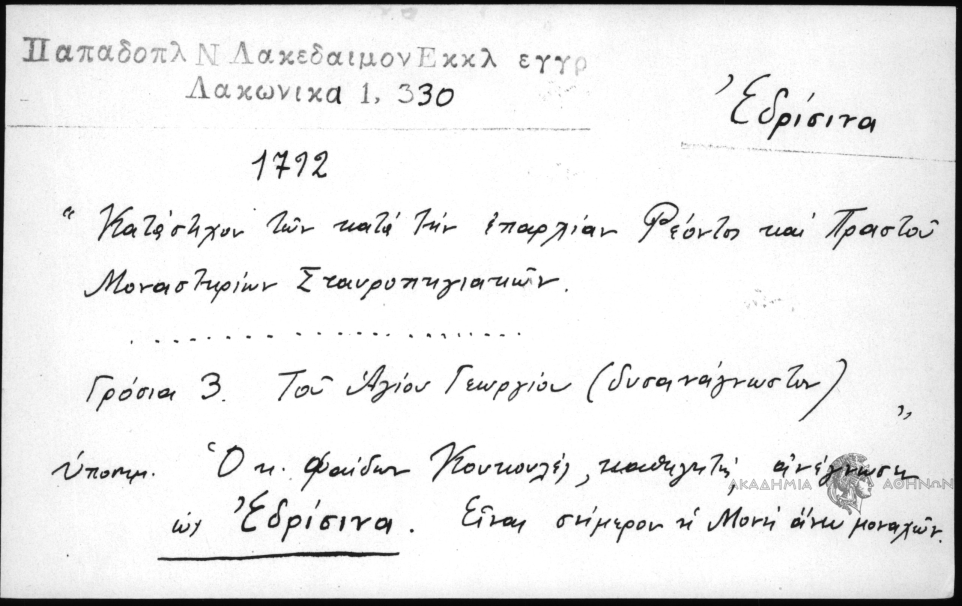 Παπαδοπλ Ν Λακεδαιμον Εκκλ εγγρ
Λακωνικα 1, 330
Ἑδρίσινα
1792
“Κατάστιχον τῶν κατά τήν ἐπαρχίαν Ρέοντος καί Πραστοῦ
Μοναστηρίων Σταυροπηγιακῶν.
. . . . . . . . . . . . . . . . . . . .
Γρόσια 3. Τοῦ Ἁγίου Γεωργίου (δυσανάγνωστον)”
ὑποσημ. Ὁ κ. Φαίδων Κουκουλές, καθηγητής, ἀνέγνωσε
ὡς Ἑδρίσινα. Εἶναι σήμερον ἡ Μονή ἄνευ μοναχῶν.
ΑΚΑΔΗΜΙΑ ΑΘΗΝΩΝ